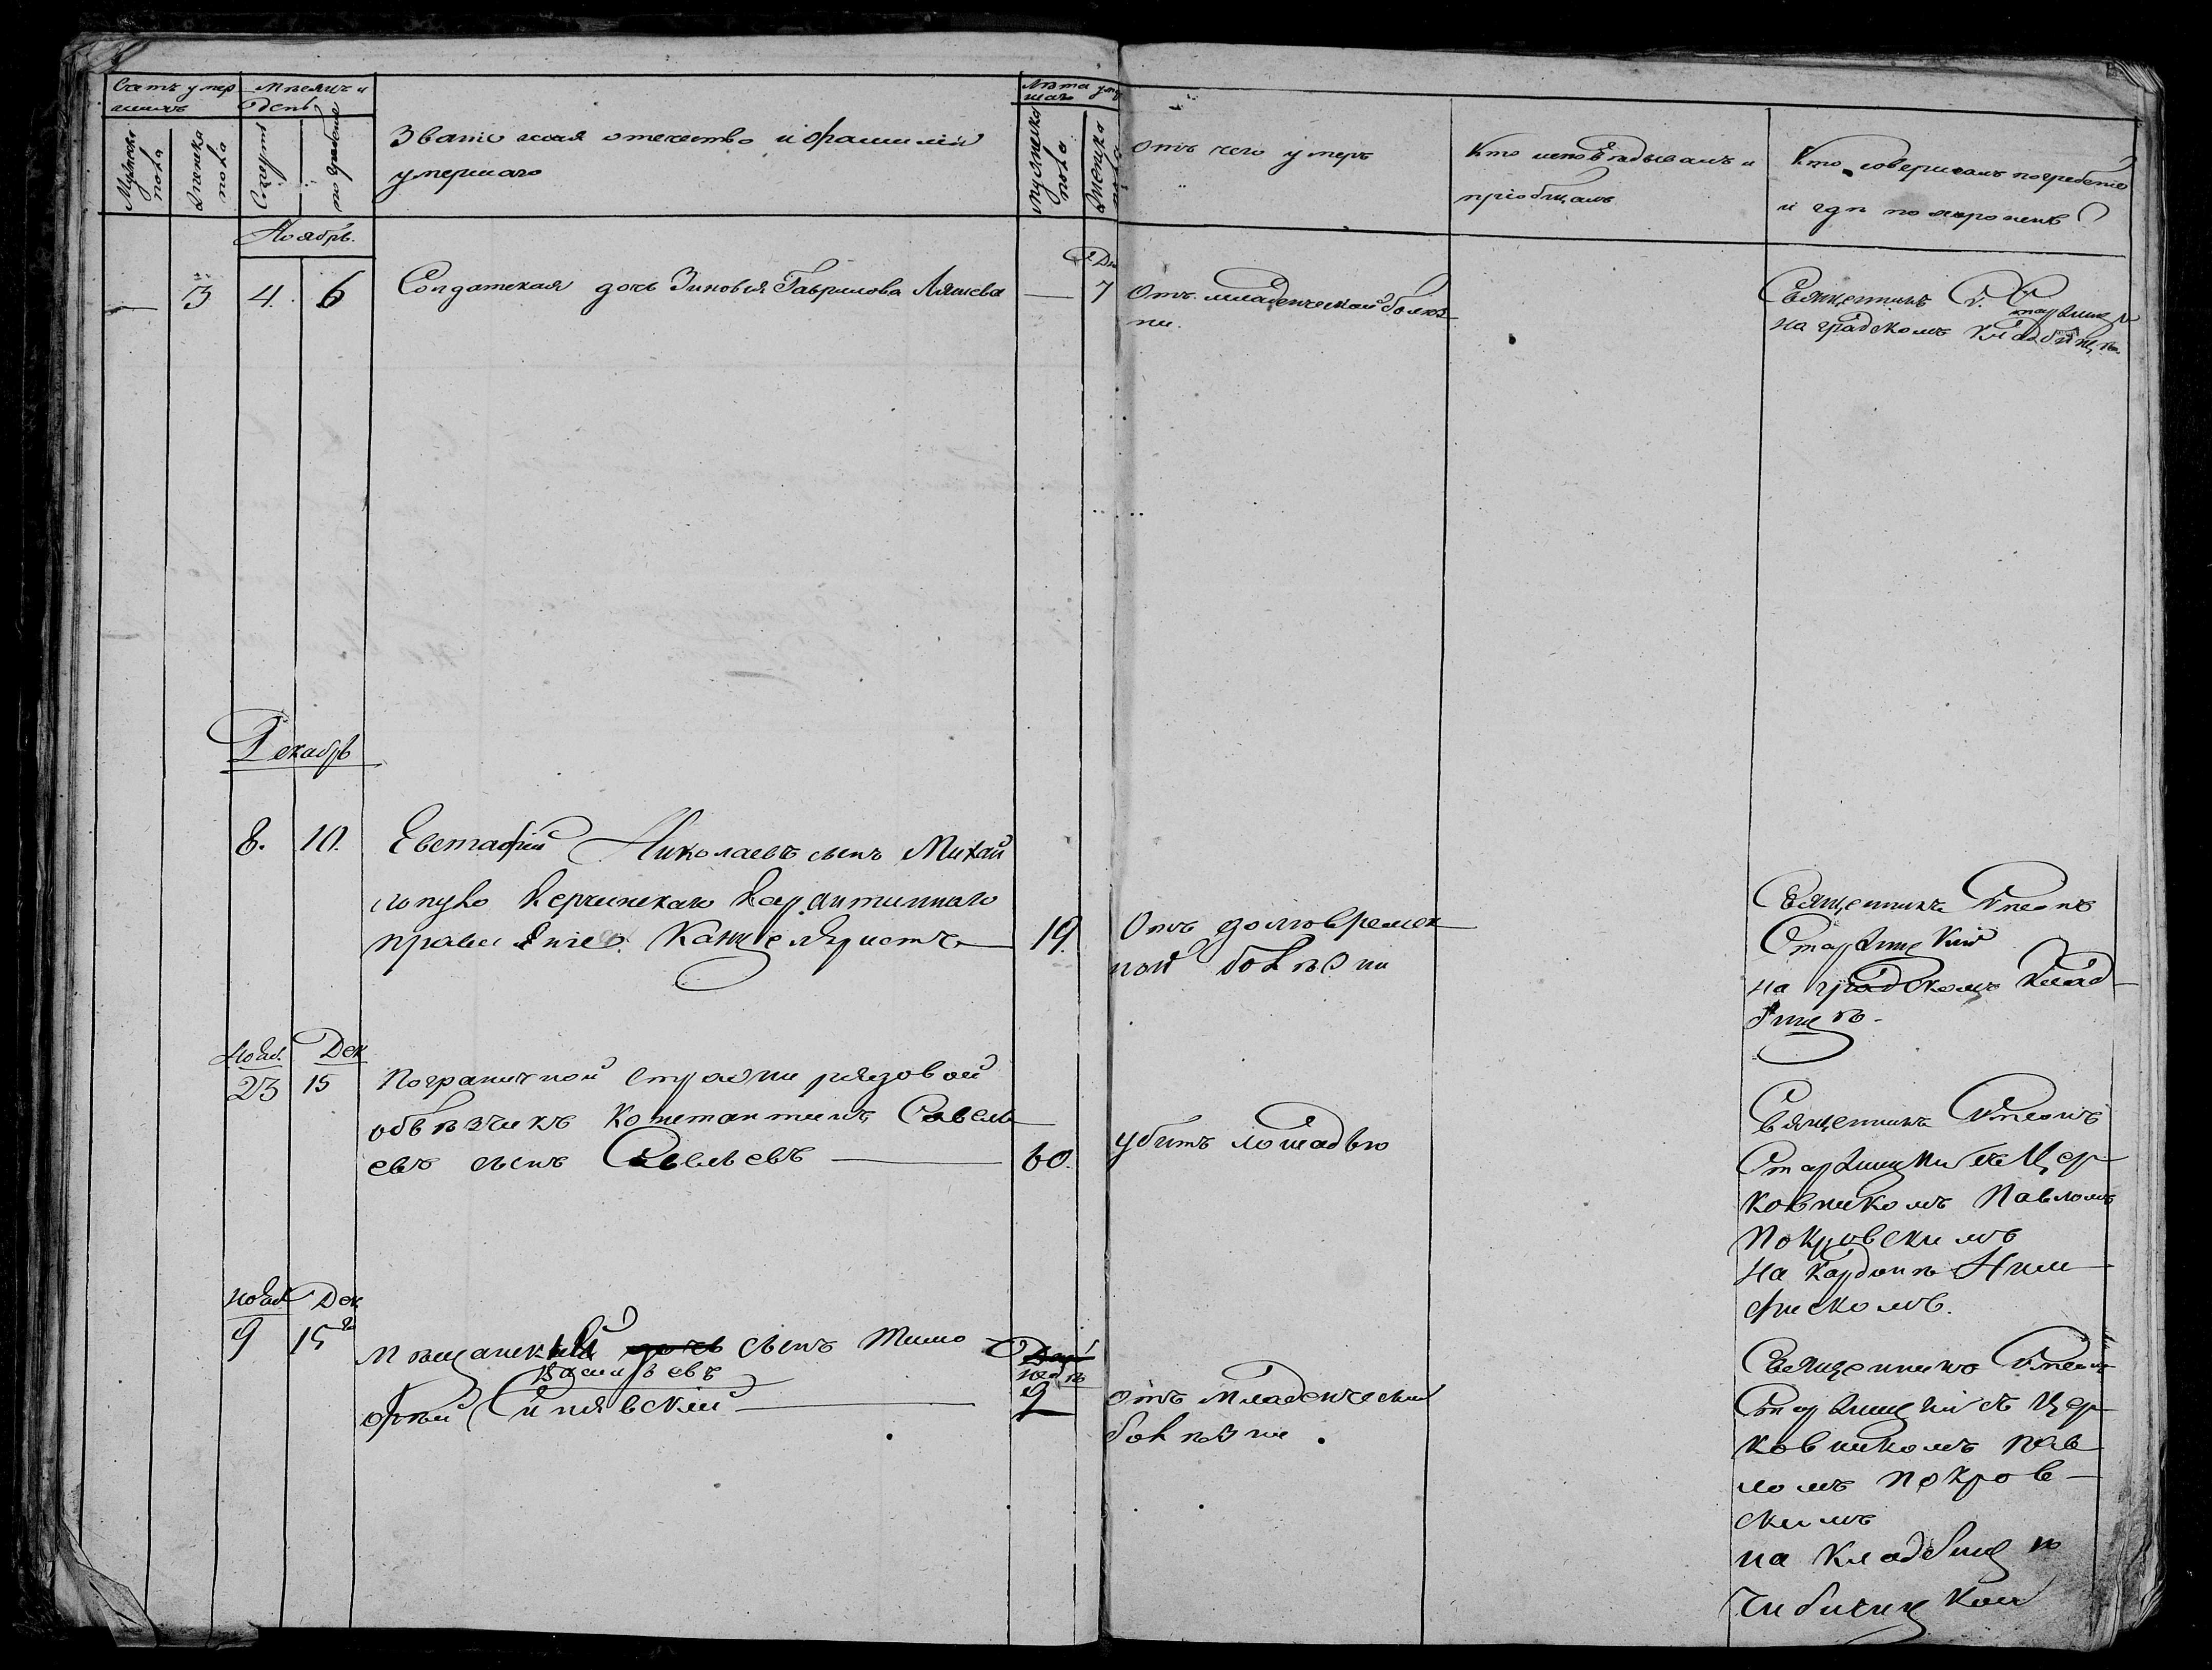 Счетъ умер
шихъ
Мѣсяцъ и
день
Мужеска
пола
Женска
пола
Смерти
погребенія
Званіе имя отечество и фамилія
умершаго
Лѣта умер
шаго
Мужеска
пола
Женска
пола
Отъ чего умеръ
Кто исповѣдывалъ и
пріобщалъ
Кто совершалъ погребеніе
и гдѣ похороненъ
Ноябрь.
— 3 4. 6 Солдатская дочь Зиновья Гаврилова Ляшева — Дн 7
Отъ младенческой болѣз
ни.
Священникъ С.
на градскомъ кладбищѣ.
Декабрь
8. 10. Евстафій Николаевъ сынъ Михай
лопуло Керчинскаго Карантиннаго
правленія Канцеляристъ — 19.
Отъ долговремен
ной болѣзни
Священникъ Симеонъ
Старжицкій
на градскомъ клад
бищѣ.
Нояб. Дек
23 15 Пограничной стражи рядовой
объѣзчикъ Константинъ Савель
евъ сынъ Савельевъ — 60.
убитъ лошадью
Священникъ Симеонъ
Старжицкій съ Цер
ковникомъ Павломъ
Покровскимъ
на Кордонѣ
Нояб Дек
9 15 Мѣщанскій дочь сынъ Тимо
Васильевъ
фѣй Синявскій —
недѣ
9
отъ младенческой
болѣзни.
Священникъ Симеонъ
Старжицкій съ Цер
ковникомъ Пав
ломъ Покров
скимъ
на кладбищѣ